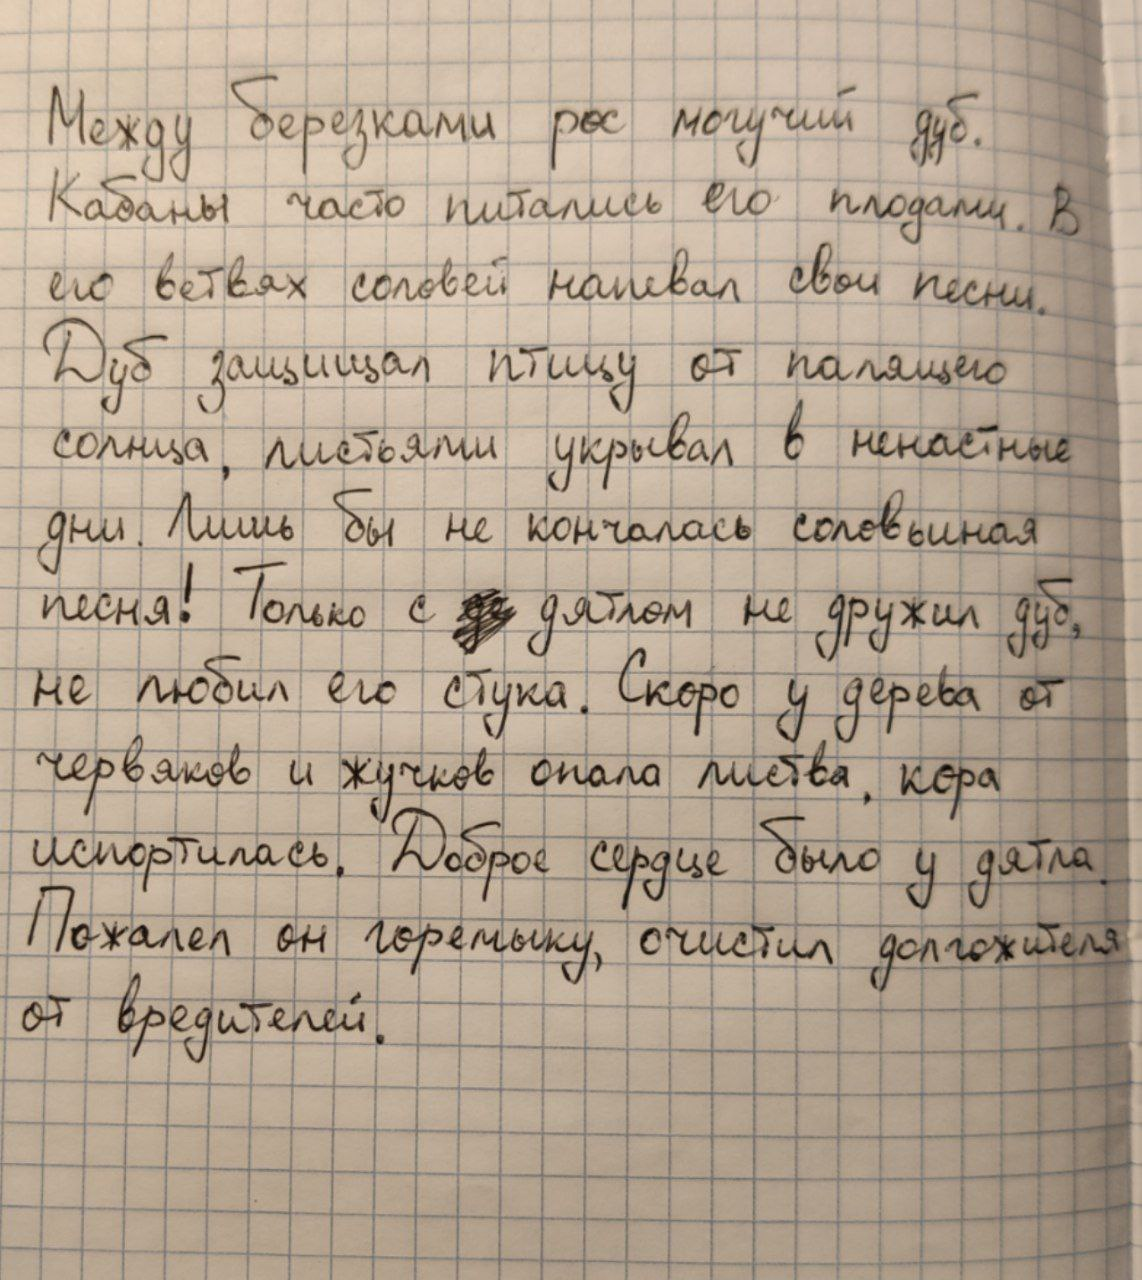 Между березками рос могучий дуб.
Кабаны часто питались его плодами. В
его ветвях соловей напевал свои песни.
Дуб защищал птицу от палящего
солнца, листьями укрывал в ненастные
дни. Лишь бы не кончалась соловьиная
песня! Только с дятлом не дружил дуб,
не любил его стука. Скоро у дерева от
червяков и жучков опала листва, кора
испортилась. Доброе сердце было у дятла.
Пожалел он горемыку, очистил долгожителя
от вредителей.